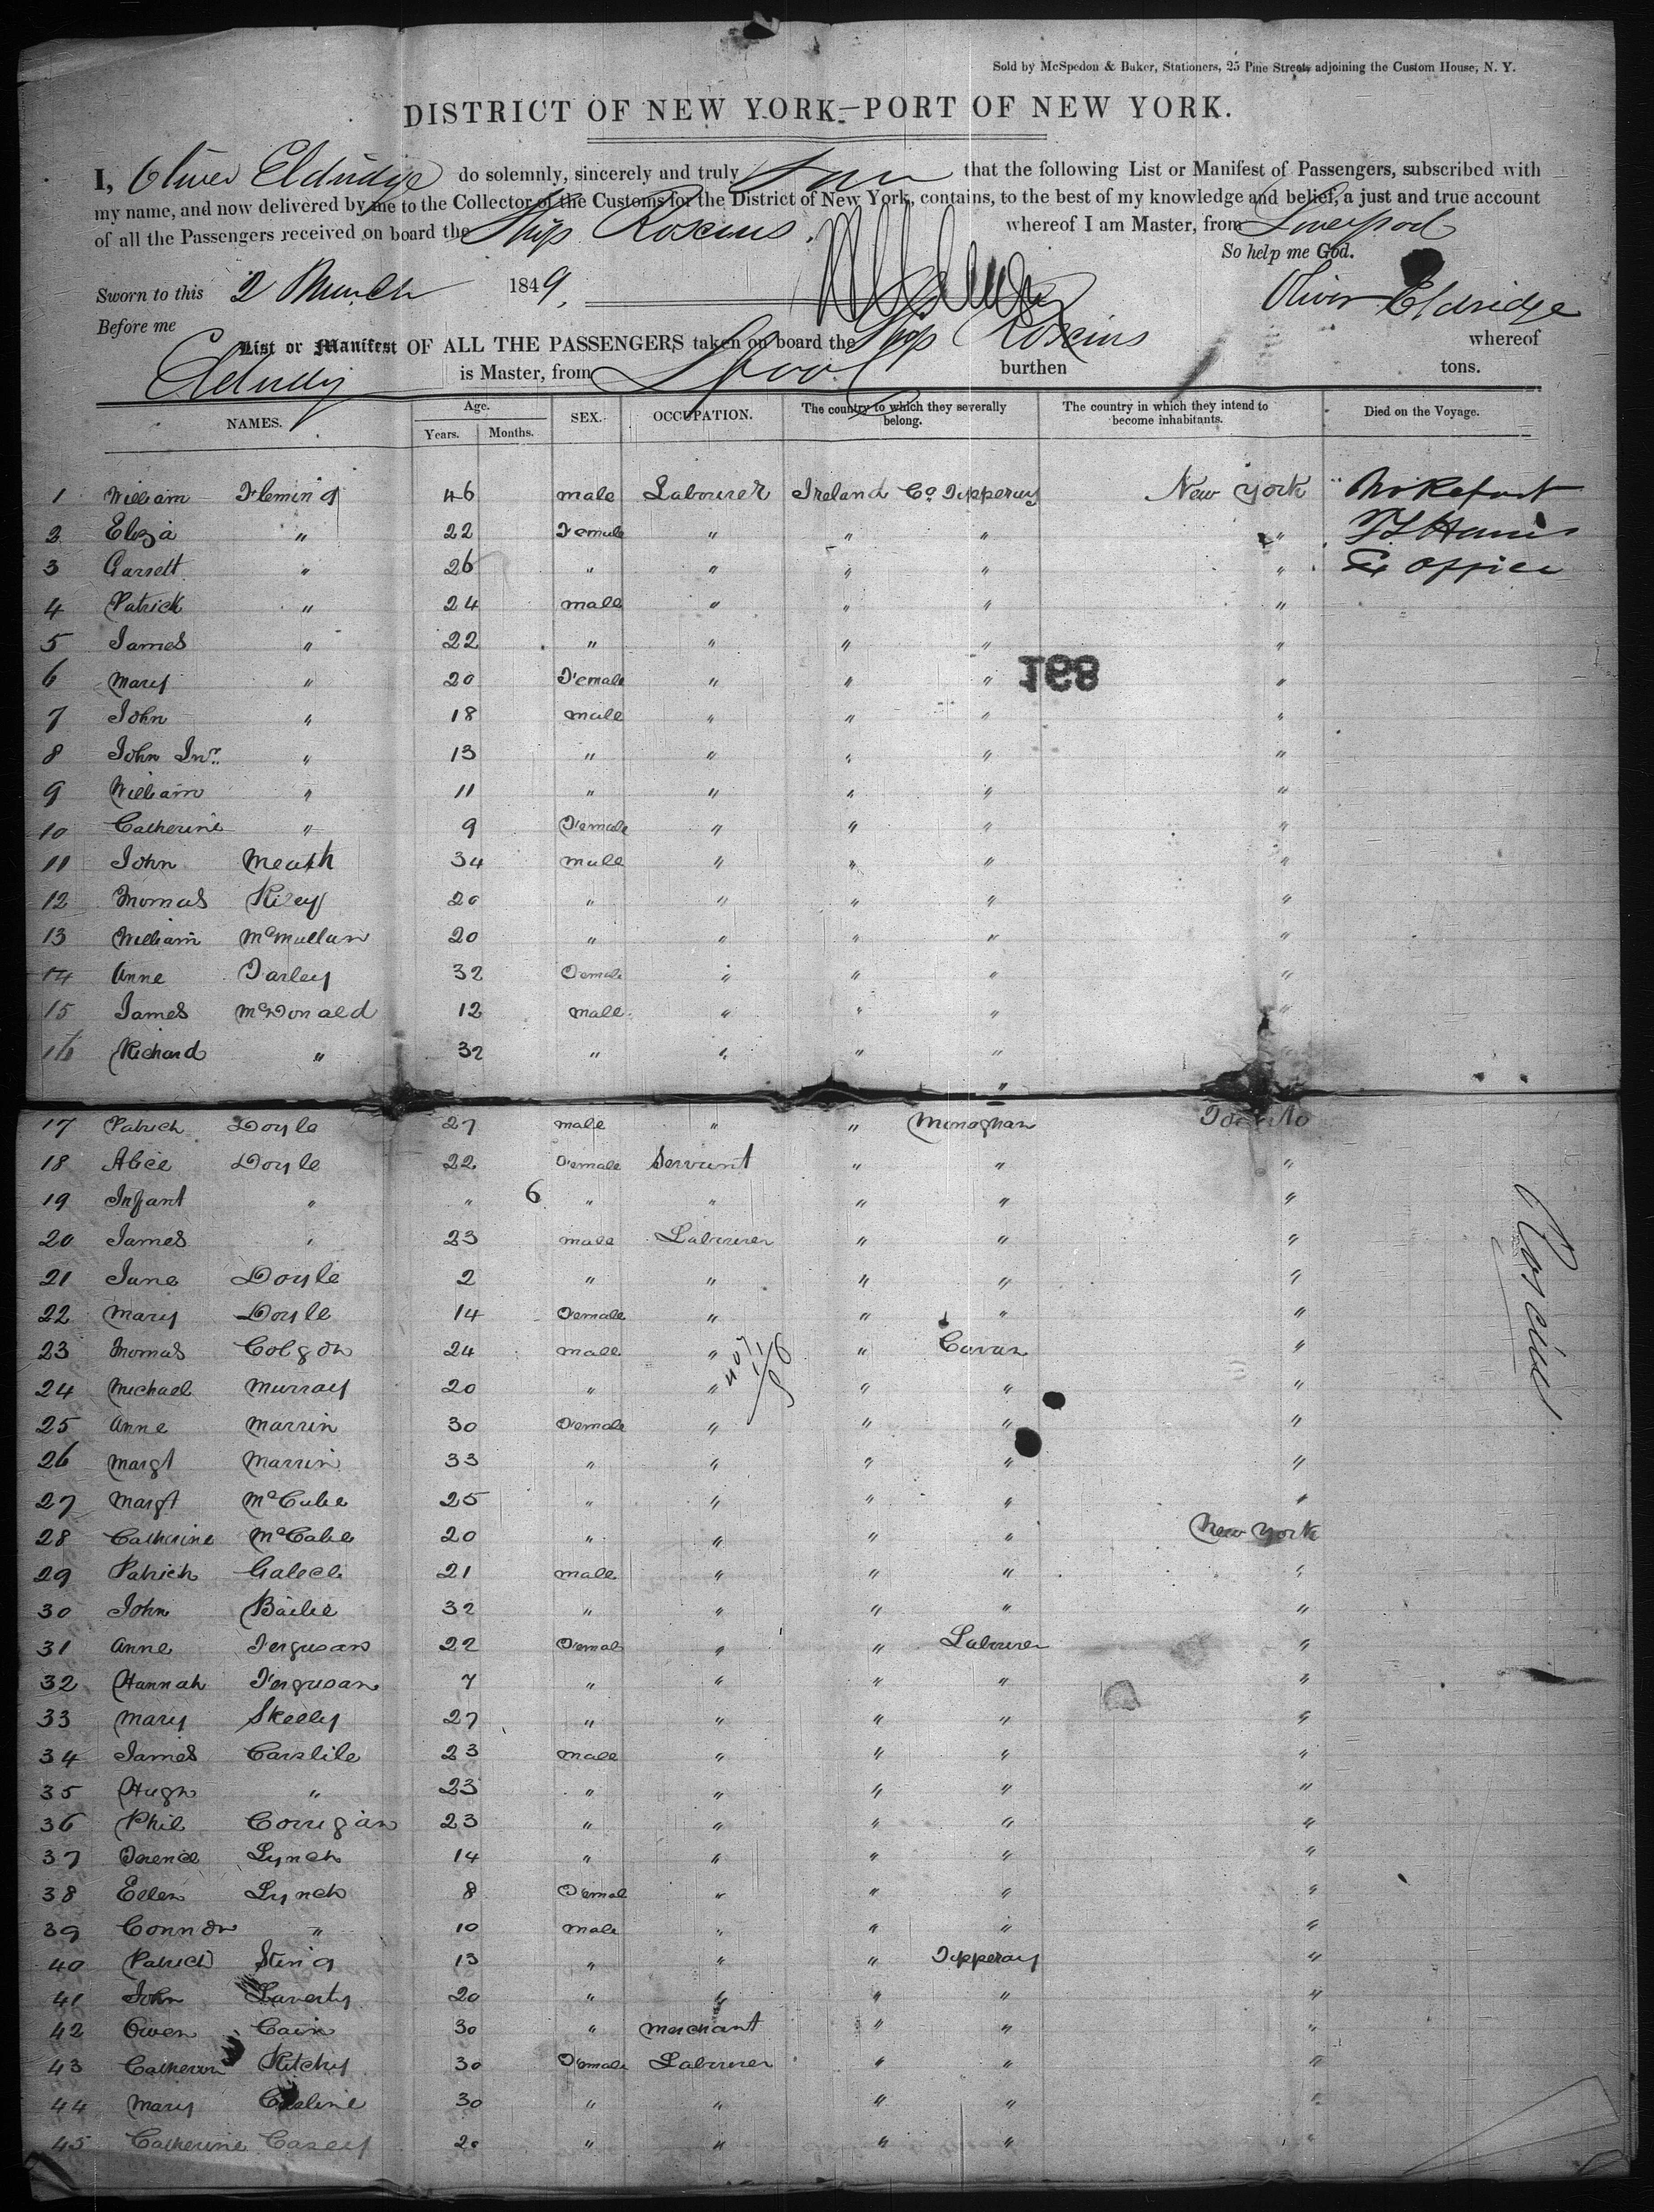 Sold by McSpedon & Baker, Stationers, 25 Pine Street, adjoining the Custom House, N. Y.
DISTRICT OF NEW YORK—PORT OF NEW YORK.
I, Oliver Eldridge do solemnly, sincerely and truly that the following List or Manifest of Passengers, subscribed with
my name, and now delivered by me to the Collector of the Customs for the District of New York, contains, to the best of my knowledge and belief, a just and true account
of all the Passengers received on board the Ship Roscius. whereof I am Master, from Liverpool
So help me God.
Sworn to this 2 March 1849, Oliver Eldridge
Before me
List or Manifest OF ALL THE PASSENGERS taken on board the Ship Roscius whereof
Eldridge is Master, from Lpool burthen tons.
NAMES. Age. Years. Months. SEX. OCCUPATION. The country to which they severally belong. The country in which they intend to become inhabitants. Died on the Voyage.
1 William Fleming 46 male Labourer Ireland Co. Tipperary New York
2 Eliza " 22 Female " " " "
3 Garrett " 26 " " " " " Office
4 Patrick " 24 male " " " "
5 James " 22 " " " " "
6 Mary " 20 Female " " " "
198
7 John " 18 male " " " "
8 John Jnr. " 13 " " " " "
9 William " 11 " " " " "
10 Catherine " 9 Female " " " "
11 John Meath 34 male " " " "
12 Thomas Riley 20 " " " " "
13 William McMullan 20 " " " " "
14 Anne Farley 32 Female " " " "
15 James McDonald 12 male " " " "
16 Richard " 32 " " " "
17 Patrick Doyle 27 male " " Monaghan
18 Alice Doyle 22 Female Servant " " "
19 Infant " " 6 " " " " "
20 James " 23 male Labourer " " "
21 Jane Doyle 2 " " " " "
22 Mary Doyle 14 Female " " " "
23 Thomas Colgon 24 male " " Cavan "
24 Michael Murray 20 " " " " "
25 Anne Marrin 30 Female " " " "
26 Margt Marrin 33 " " " " "
27 Margt McCabe 25 " " " " "
28 Catherine McCabe 20 " " " " New York
29 Patrick 21 male " " " "
30 John Bailie 32 " " " " "
31 Anne Fergusan 22 Femal " " Labourer "
32 Hannah Fergusan 7 " " " " "
33 Mary Skelly 27 " " " " "
34 James Carslile 23 male " " " "
35 Hugh " 23 " " " " "
36 Phil Corrigan 23 " " " " "
37 Terence Lynch 14 " " " " "
38 Ellen Lynch 8 Femal " " " "
39 Connor " 10 male " " " "
40 Patrick 13 " " " Tipperary "
41 John Laverty 20 " " " " "
42 Owen Cain 30 " merchant " " "
43 Catherin Ritchy 30 Female Labourer " " "
44 Mary 30 " " " " "
45 Catherine Casey 20 " " " "
Roscius